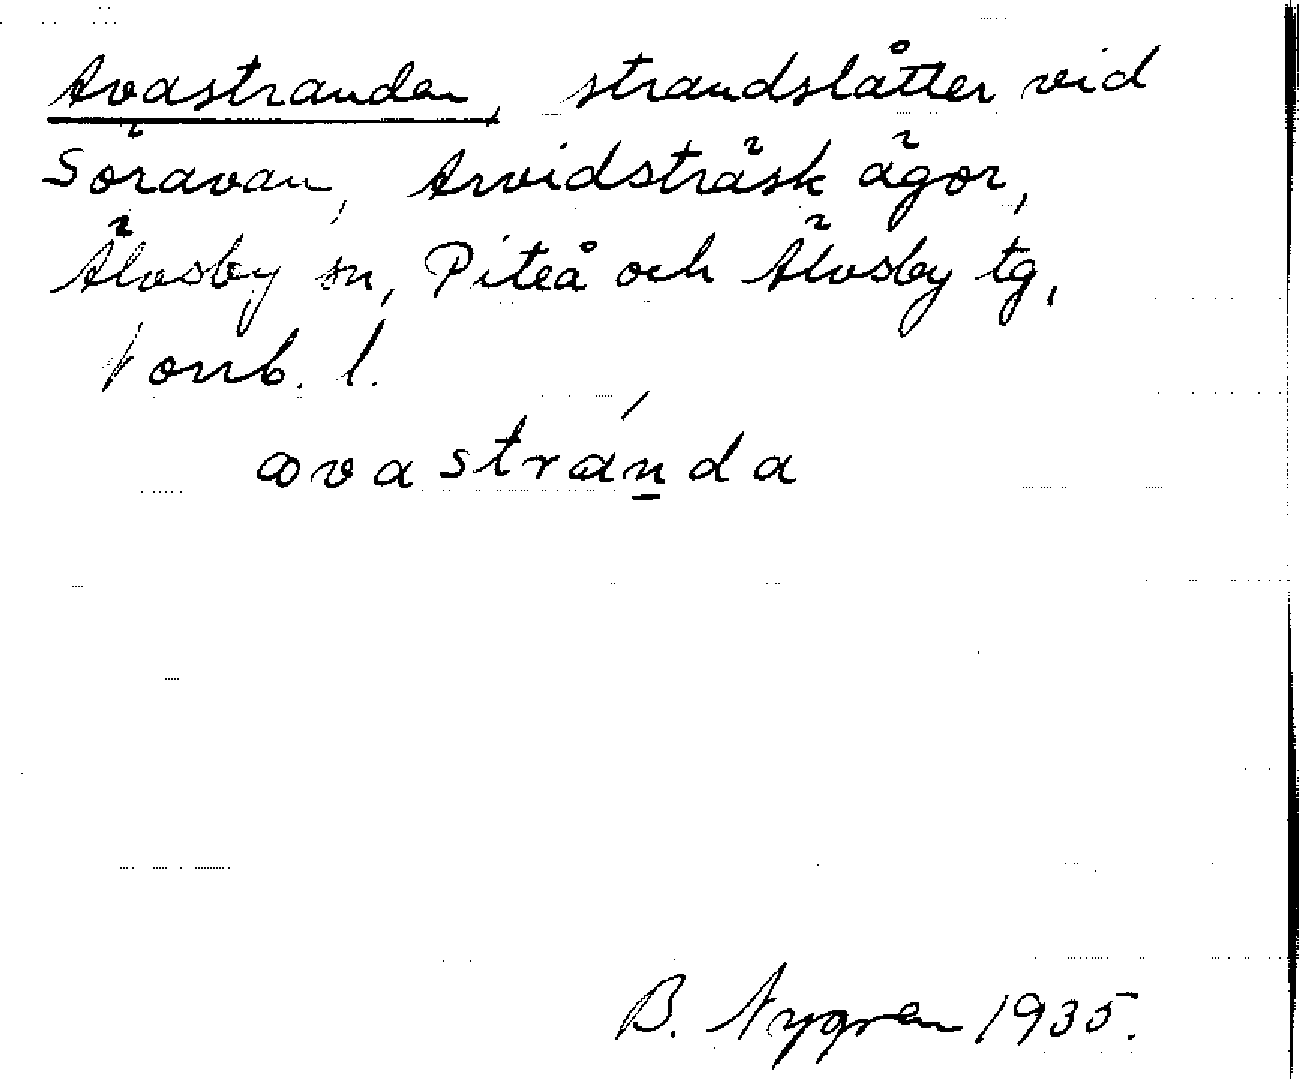 Avastranden, strandslåtter vid
Söravan, Arvidsträsk ägor,
Älvsby sn, Piteå och Älvsby tg,
Norrb. l.
ɷvastránda
B. Nygren 1935.